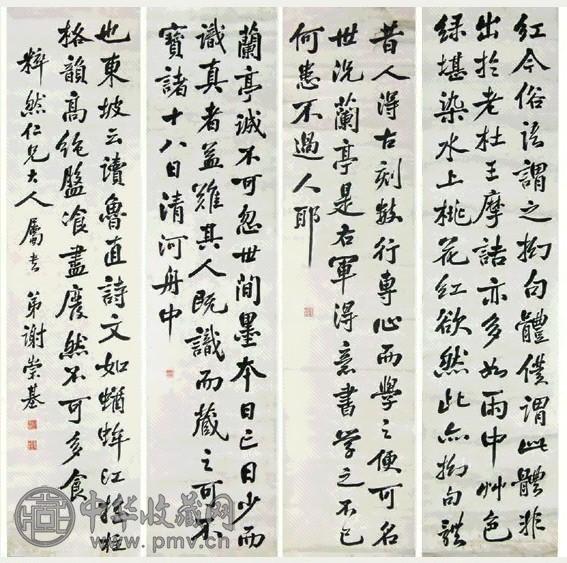 红今俗语谓之拗句體僕谓此體非
出於老杜王摩詰亦多如雨中艸色
绿堪染水上桃花红欲然此亦拗句體
昔人得古刻数行专心而學之便可名
世况蘭亭是右軍得意書学之不已
何患不過人耶
蘭亭诚不可忽世间墨本日亡日少而
識真者益难其人既識而藏之可不
寶諸十八日清河舟中
也東坡云读魯直詩文如蝤蛑江珧柱
格韻高绝盤飡盡废然不可多食
粹然仁兄大人属书 弟谢崇基
中华收藏网
www.pmv.cn